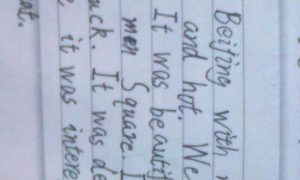 Beijing with
and hot. We
It was beautif
men Square I
uck. It was de
it was intere
at.